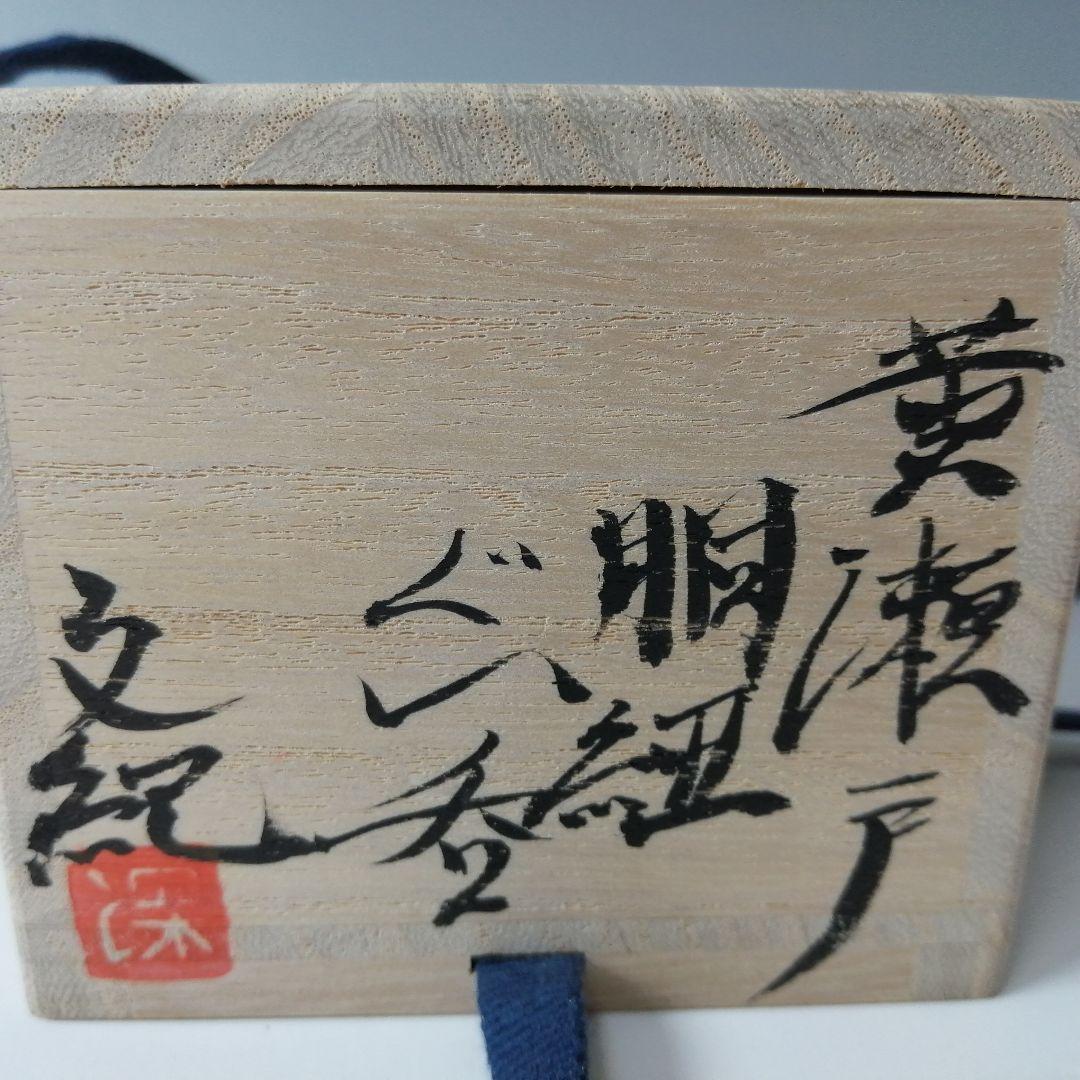 黄瀬戸
胴紐
ぐい呑
文紀
深